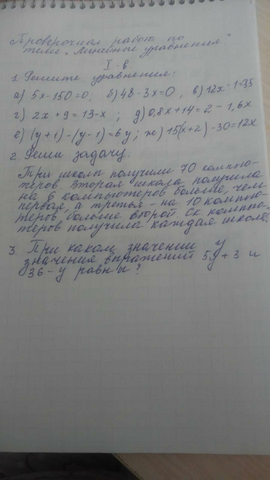 Проверочная работа по
теме „Линейные уравнения"
I - в
1. Решите уравнения:
а) 5x-150=0, б) 48-3x=0, в) 12x-1=35
г) 2x+9=13-x ; д) 0,8x+14=2-1,6x
е) (y+1)-(y-1)=6y; ж) 15(x+2)-30=12x
2. Реши задачу.
Три школы получили 70 компью-
теров. Вторая школа получила
на 6 компьютеров больше, чем
первая, а третья - на 10 компью-
теров больше второй. Ск. компью-
теров получила каждая школа?
3. При каком значении y
значения выражений 5y+3 и
36-y равны?